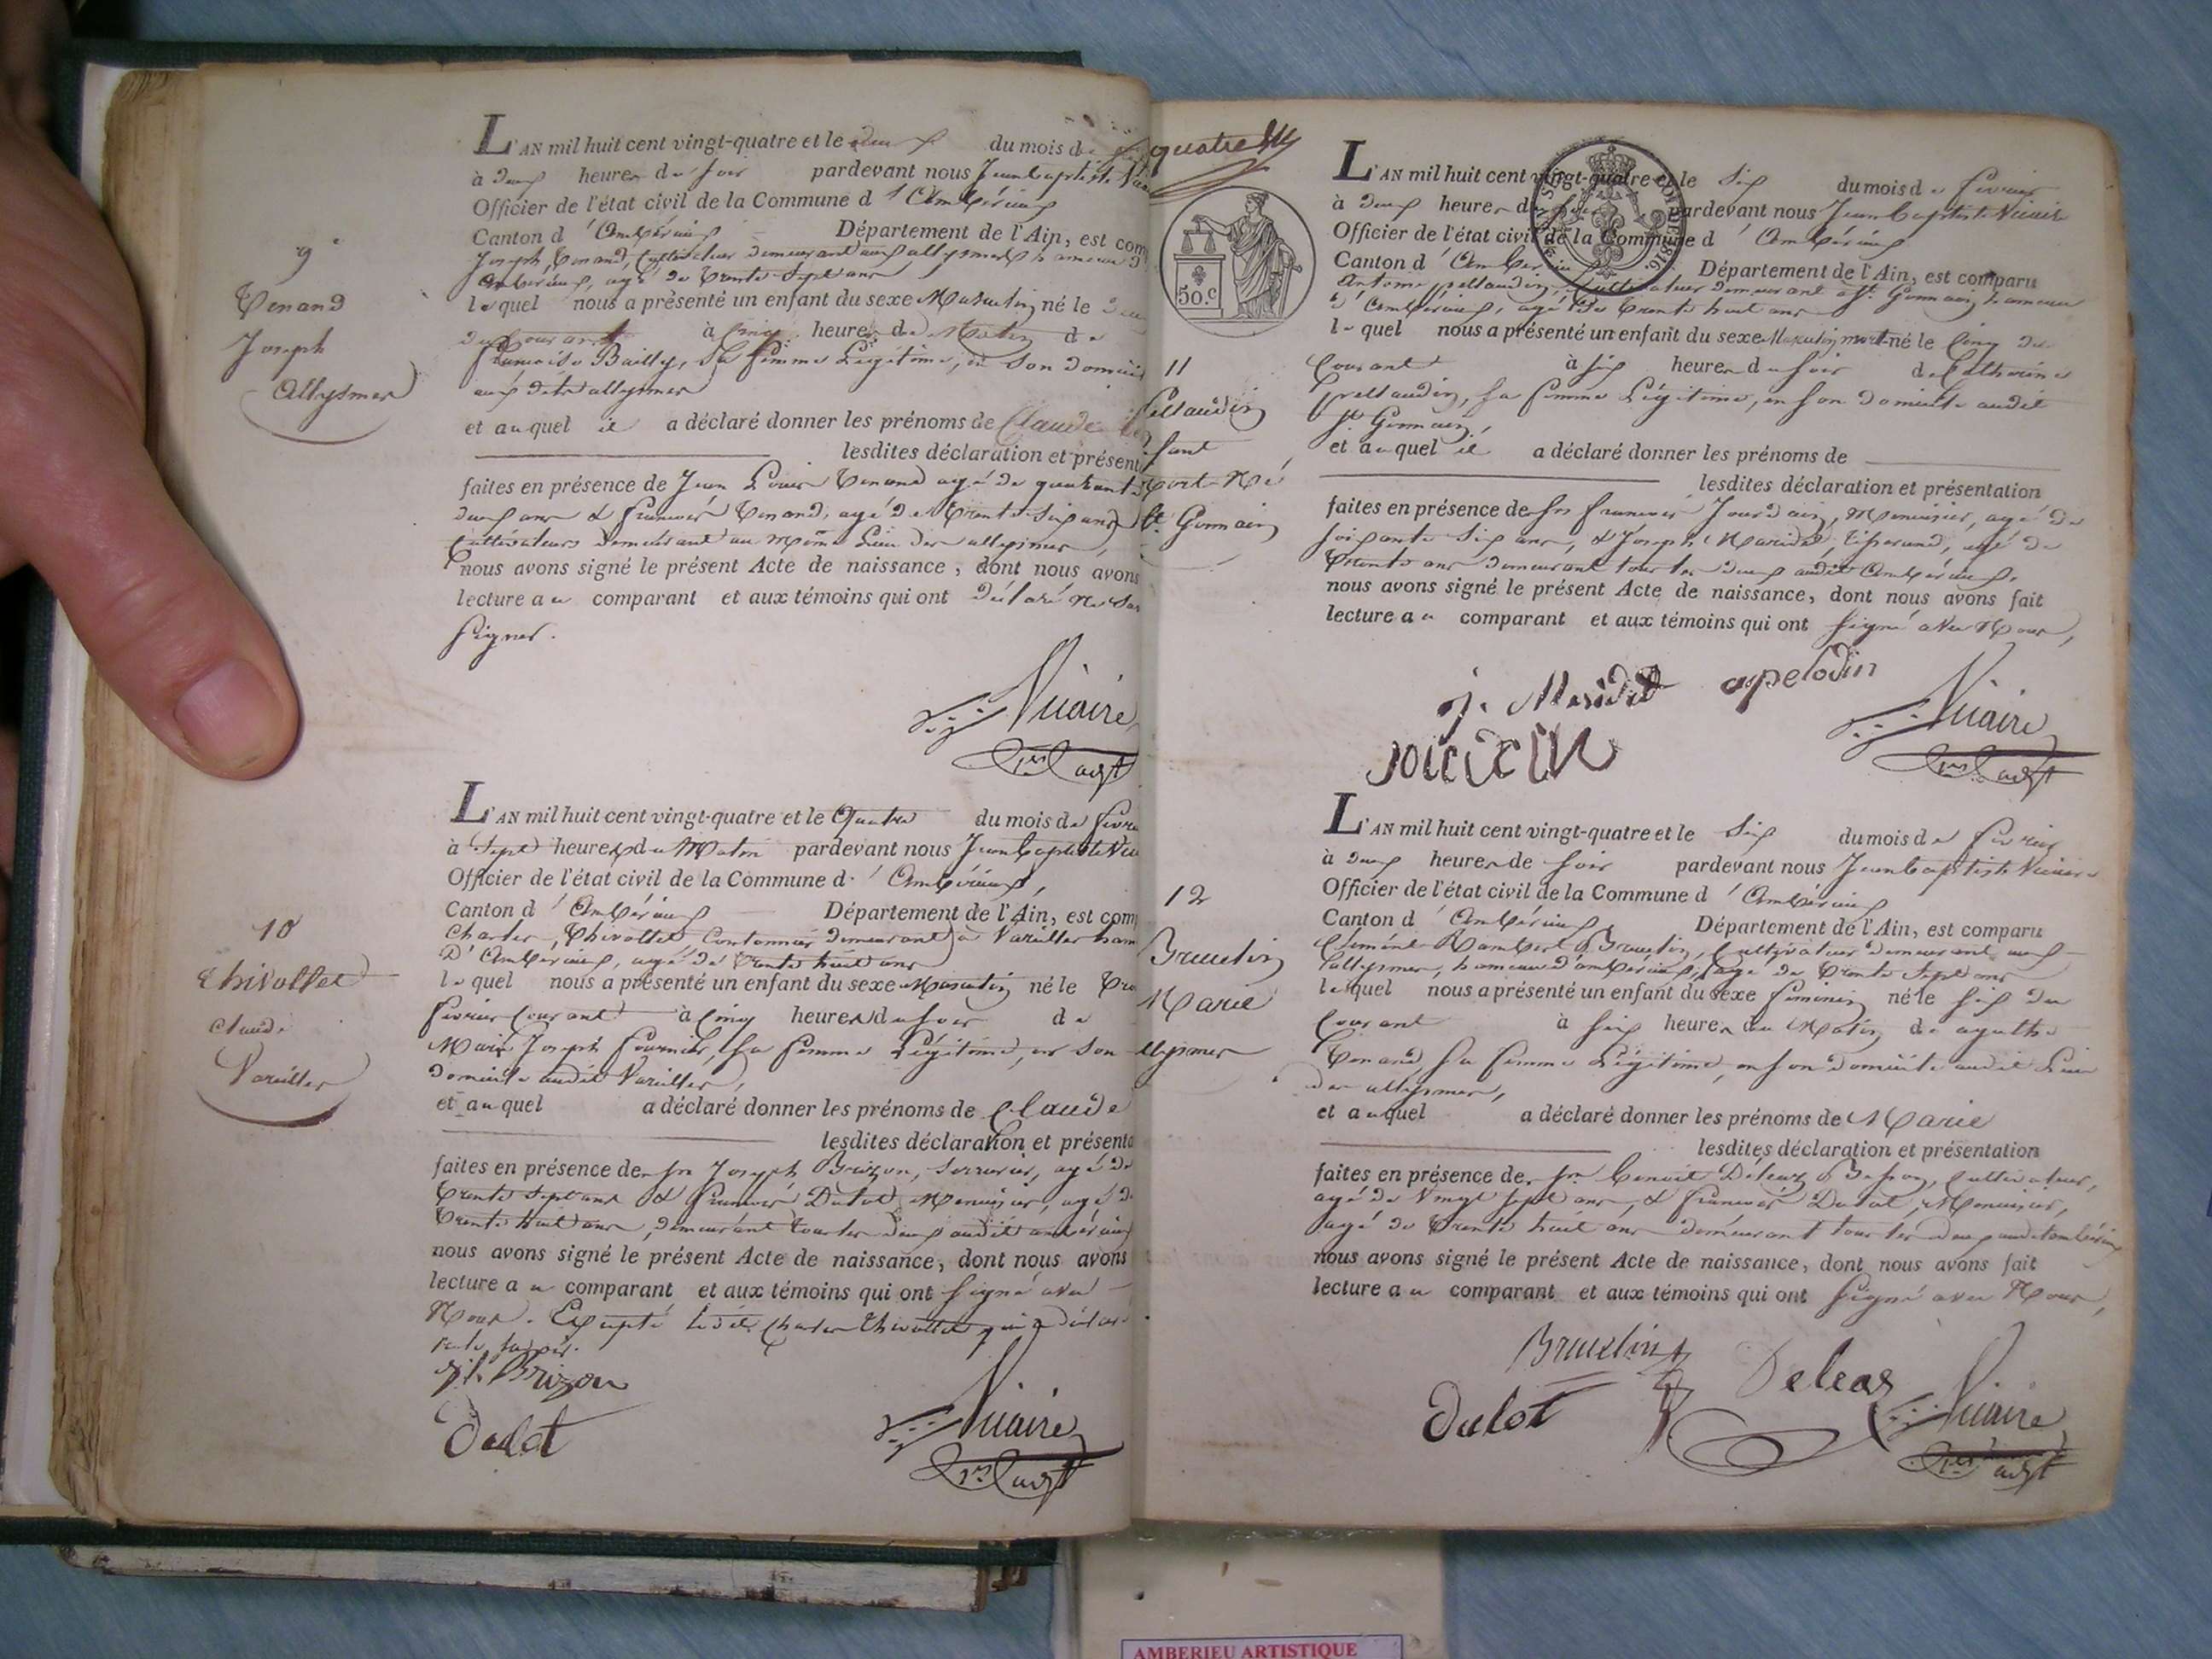 9e
Tenand
Joseph
Allysmes
L'AN mil huit cent vingt-quatre et le deux du mois de
à deux heures du soir pardevant nous Jean Baptiste
Officier de l'état civil de la Commune d'Ambérieux
Canton d'Ambérieux Département de l'Ain, est com
Joseph Tenand, Cultivateur demeurant aux allysmes hameau d'
Ambérieux, agé de trente sept ans
lequel nous a présenté un enfant du sexe Masculin né le
du Courant à Cinq heures du Matin de
Bailly, Sa femme Légitime, en Son domicile
aux dits allysmes
et auquel il a déclaré donner les prénoms de Claude
lesdites déclaration et présent
faites en présence de Jean Louis Tenand agé de quarante
deux ans & François Tenand, agé de trente six ans
Cultivateurs demeurant au même Lieu des allysmes,
nous avons signé le présent Acte de naissance, dont nous avons
lecture au comparant et aux témoins qui ont déclaré ne Sav
Signer.
Vicaire
1er adjt
10
Thivollet
Claude
Vareilles
L'AN mil huit cent vingt-quatre et le Quatre du mois de févr
à Sept heures du Matin pardevant nous Jean Baptiste Vic
Officier de l'état civil de la Commune d'Ambérieux,
Canton d'Ambérieux Département de l'Ain, est comp
Charles Thivollet Cantonnier demeurant à Vareilles ham
D'Ambérieux, agé de trente huit ans
lequel nous a présenté un enfant du sexe Masculin né le
février Courant à Cinq heures du soir de
Marie Joseph Fournier, Sa femme Légitime, en Son
domicile audit Vareilles,
et auquel a déclaré donner les prénoms de Claude
lesdites déclaration et présenta
faites en présence de Sr Joseph Brizon, Serrurier, agé de
trente Sept ans & François Dulot, Menuisier, agé de
trente huit ans, demeurant tous les deux audit ambérieux
nous avons signé le présent Acte de naissance, dont nous avons
lecture au comparant et aux témoins qui ont Signé avec
Nous. Excepté ledit Charles Thivollet qui a déclaré
ne le savoir.
Brizon
Dulot
Vicaire
1er adjt
quatre
50.C
11
Pellaudin
fant
Mort-Né
St. Germain
L'AN mil huit cent vingt-quatre et le Six du mois de février
à deux heures du soir pardevant nous Jean Baptiste Vicaire
Officier de l'état civil de la Commune d'Ambérieux
Canton d'Ambérieux Département de l'Ain, est comparu
Antoine pellaudin, Cultivateur demeurant à St. Germain, hameau
d'Ambérieux, agé de trente huit ans
lequel nous a présenté un enfant du sexe Masculin mort-né le Cinq du
Courant à six heures du soir de Catherine
pellaudin, Sa femme Légitime, en Son domicile audit
St. Germain,
et auquel il a déclaré donner les prénoms de
lesdites déclaration et présentation
faites en présence de Sr françois Jourdain, Menuisier, agé de
soixante Six ans, & Joseph Maridet, agé de
trente ans demeurant tous les deux audit Ambérieux.
nous avons signé le présent Acte de naissance, dont nous avons fait
lecture au comparant et aux témoins qui ont Signé avec Nous,
j. Maridet apelodin
Vicaire
1er adjt
12
Brucelin
Marie
allysmes
L'AN mil huit cent vingt-quatre et le Six du mois de février
à deux heures de soir pardevant nous Jean Baptiste Vicaire
Officier de l'état civil de la Commune d'Ambérieux
Canton d'Ambérieux Département de l'Ain, est comparu
Clément Rambert Brucelin, Cultivateur demeurant aux
allysmes, hameau d'ambérieux, agé de trente Sept ans
lequel nous a présenté un enfant du sexe féminin né le Six du
Courant à Six heures du Matin de agathe
Tenand, Sa femme Légitime, en Son domicile audit Lieu
des allysmes,
et auquel a déclaré donner les prénoms de Marie
lesdites déclaration et présentation
faites en présence de Sr Benoit Besson, Cultivateur,
agé de Vingt Sept ans, & françois Dulot, Menuisier,
agé de trente huit ans demeurant tous les deux audit ambérieux
nous avons signé le présent Acte de naissance, dont nous avons fait
lecture au comparant et aux témoins qui ont Signé avec Nous,
Brucelin
Dulot
Vicaire
1er adjt
AMBERIEU ARTISTIQUE